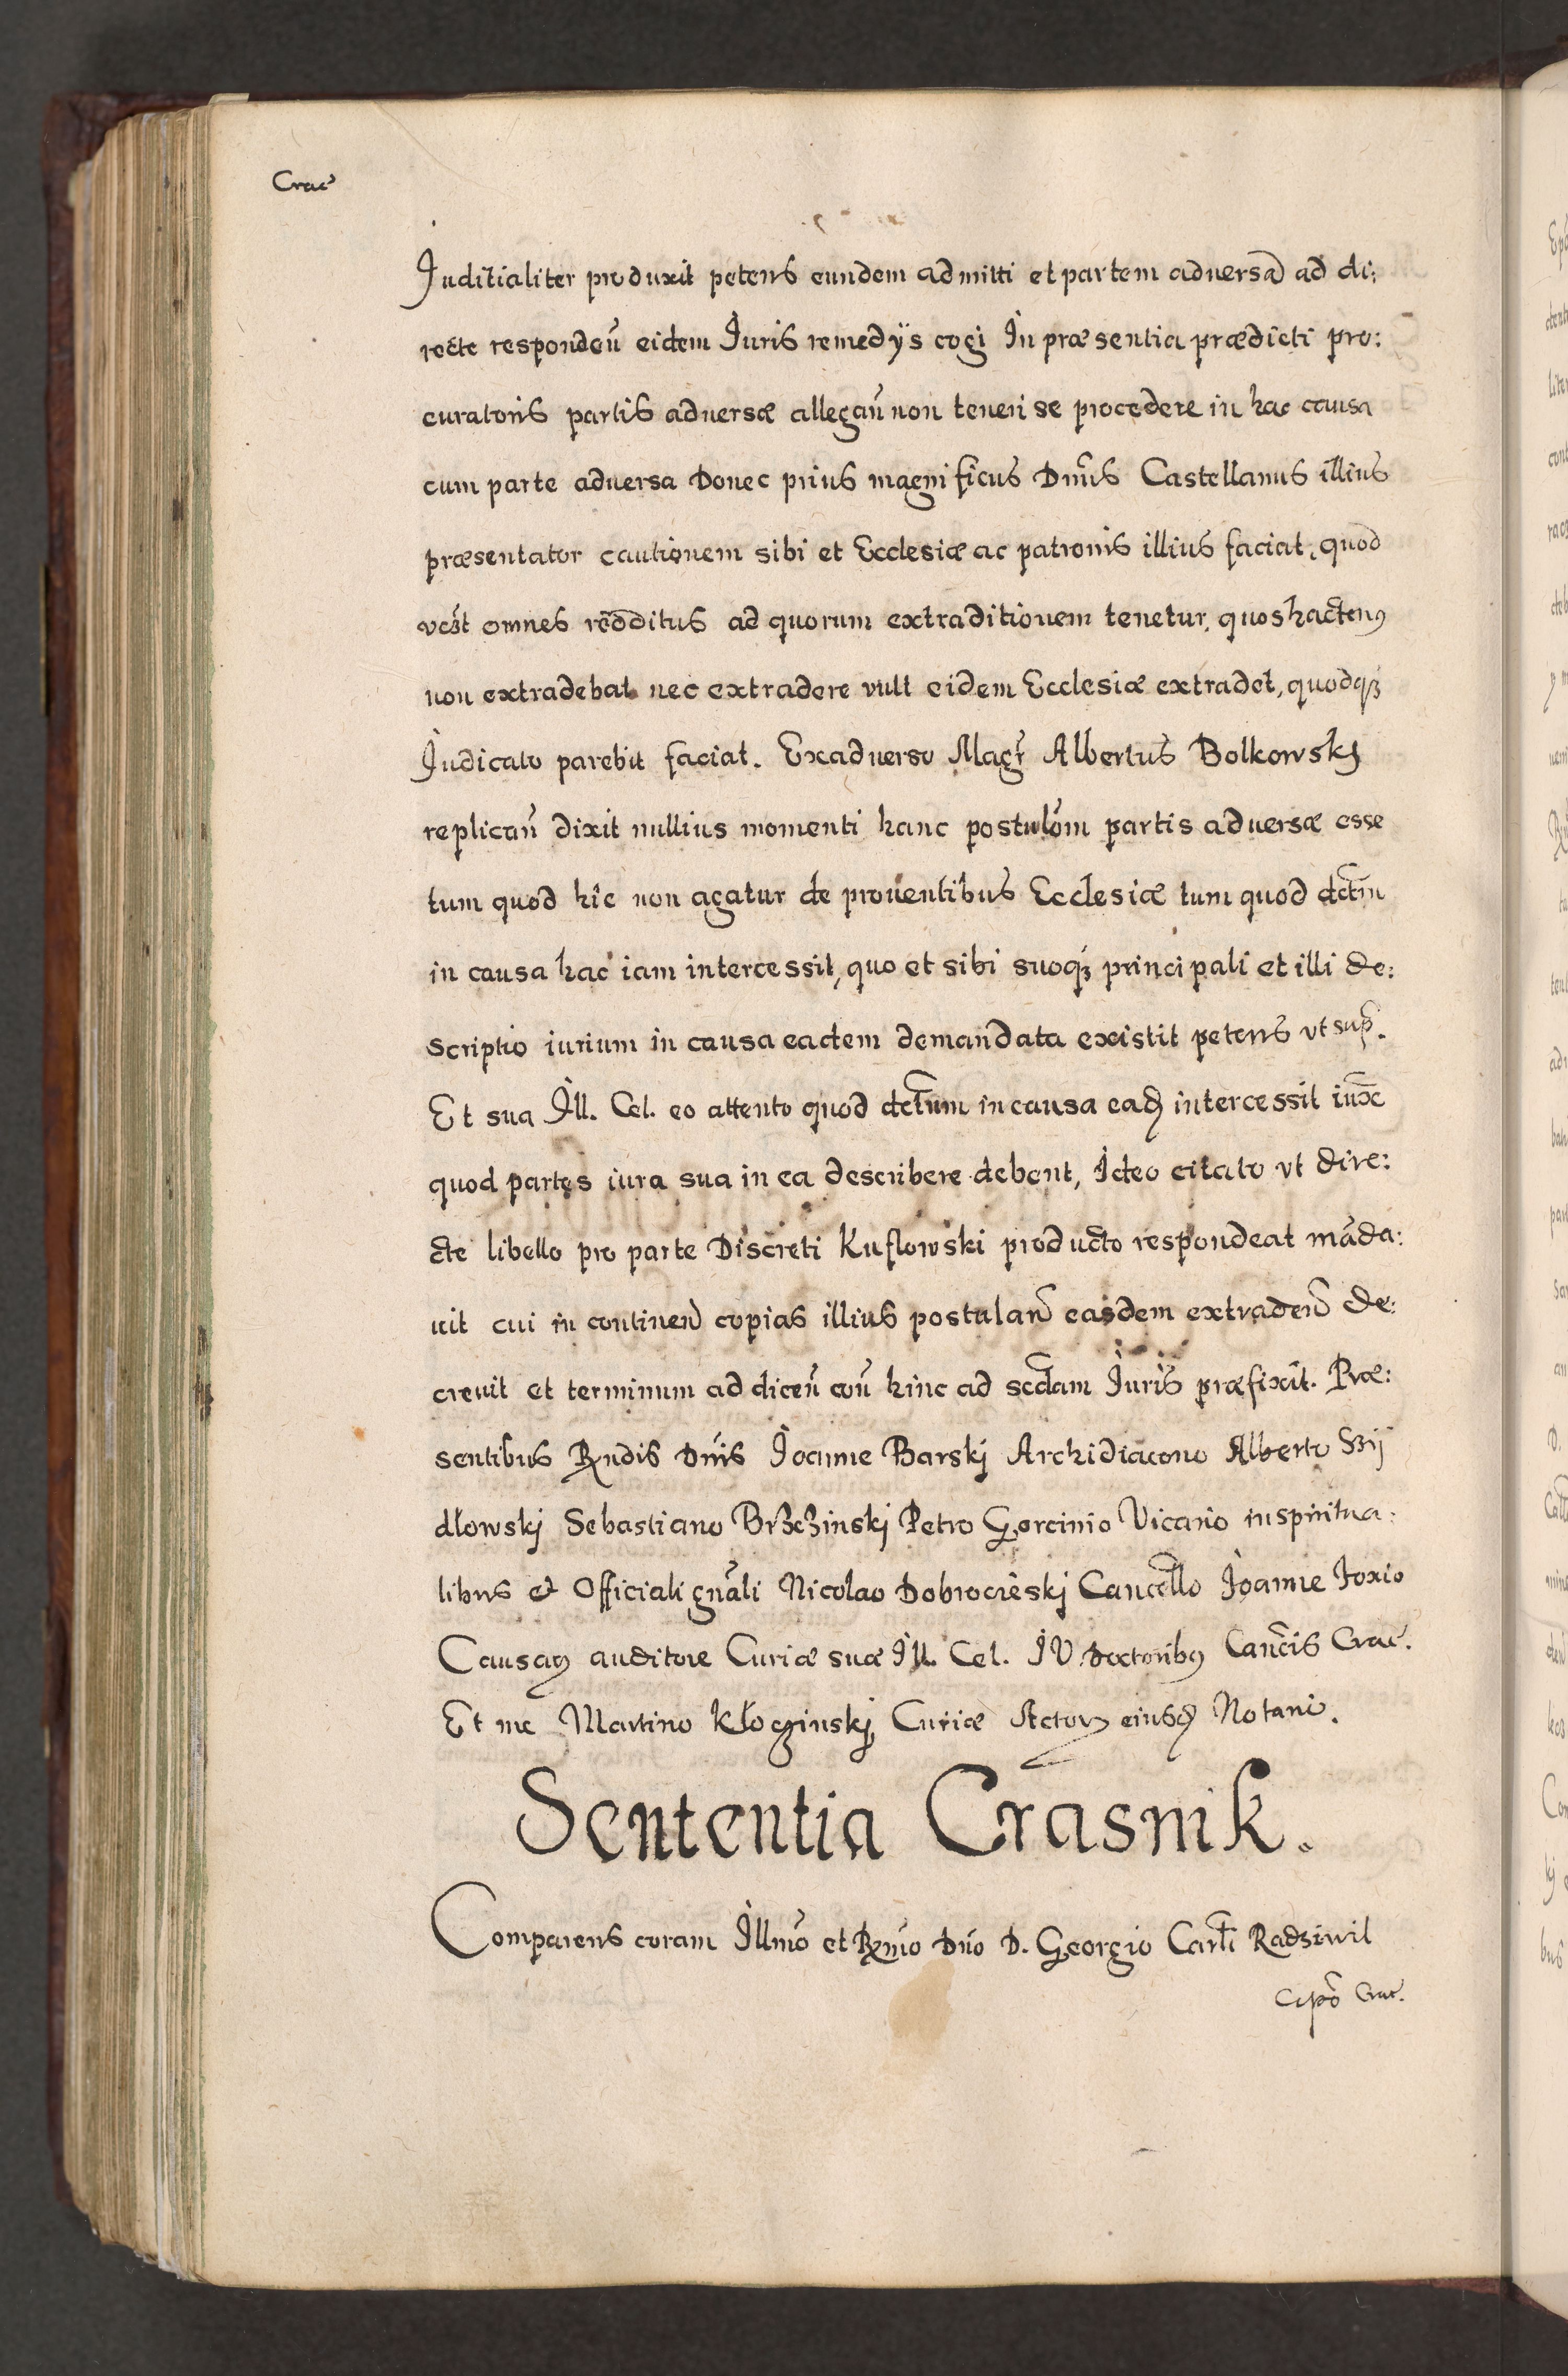 Crac̃
Juditialiter produxit petens eundem admitti et partem aduersã ad di:
recte respondeñ eidem Juris remedÿs cogi In præsentia prædicti pro:
curatoris partis aduersæ allegañ non teneri se procedere in hac causa
cum parte aduersa Donec prius magnificus Dnus Castellanus illius
præsentator cautionem sibi et Ecclesiæ ac patronis illius faciat, quod
omnes redditus ad quorum extraditionem tenetur, quos hacteny
non extradebat nec extradere vult eidem Ecclesiæ extradet, quodqȝ
Judicato parebit faciat. Exaduerso Magr Albertus Bolkowskj
replicañ dixit nullius momenti hanc postulõm partis aduersæ esse
tum quod hic non agatur de prouentibus Ecclesiæ tum quod dctm̃
in causa hac iam intercessit, quo et sibi suoqȝ principali et illi de:
scriptio iurium in causa eadem demandata existit petens vt sup̃.
Et sua Ill. Cel. eo attento quod dctum in causa ead intercessit
quod partes iura sua in ea describere debent, Ideo citato vt dire:
cte libello pro parte Discreti Kuflowski producto respondeat mãda:
uit cui in continen̄ copias illius postulan̄ easdem extraden̄ de:
creuit et terminum ad diceñ coñ hinc ad scdam Juris præfixit. Præ:
sentibus Rndis Dnis Joanne Barskj Archidiacono Alberto Szij
dłowskj Sebastiano Brzezinskj Petro Gorcinio Vicario in spiritua:
libus et Officiali gnãli Nicolao Dobrocieskj Cancello Joanne Foxio
Causaꝝ auditore Curiæ suæ Ill. Cel. JV. doctoriby Cancis Crac̃.
Et me Martino Kłoczinskj Curiæ Actoꝝ eiusd Notario.
Sententia Crasnik.
Comparens coram Illmo et Rmo Dño D. Georgio Carli Radziwil
Epõ Crac.